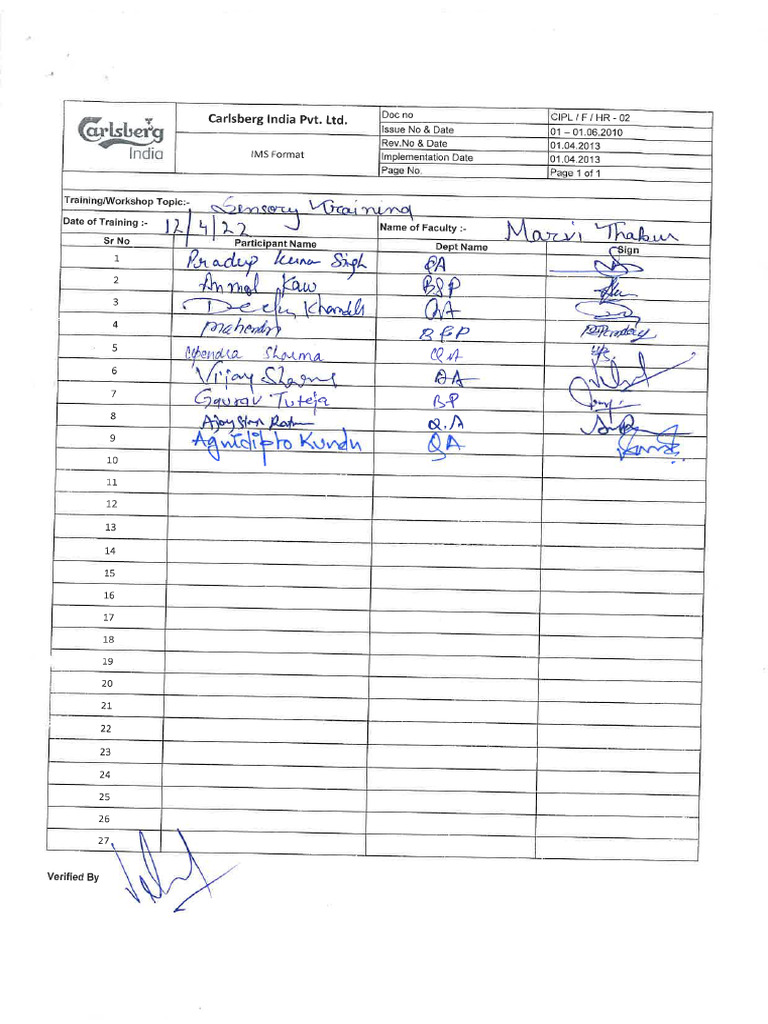 Carlsberg
India
Carlsberg India Pvt. Ltd.
IMS Format
Doc no CIPL / F / HR - 02
Issue No & Date 01 – 01.06.2010
Rev.No & Date 01.04.2013
Implementation Date 01.04.2013
Page No. Page 1 of 1
Training/Workshop Topic:- Sensory Training
Date of Training :- 12/4/22 Name of Faculty :- Marvi Thakur
Sr No Participant Name Dept Name Sign
1 Pradeep Kumar Singh QA
2 Anmol Kaw BSP
3 Khandel QA
4 Mahendra
5 Upendra Sharma QA
6 Vijay Sharma QA
7 Gaurav Tuteja BP
8 Ajay Q.A
9 Agnidipto Kundu QA
10
11
12
13
14
15
16
17
18
19
20
21
22
23
24
25
26
27
Verified By